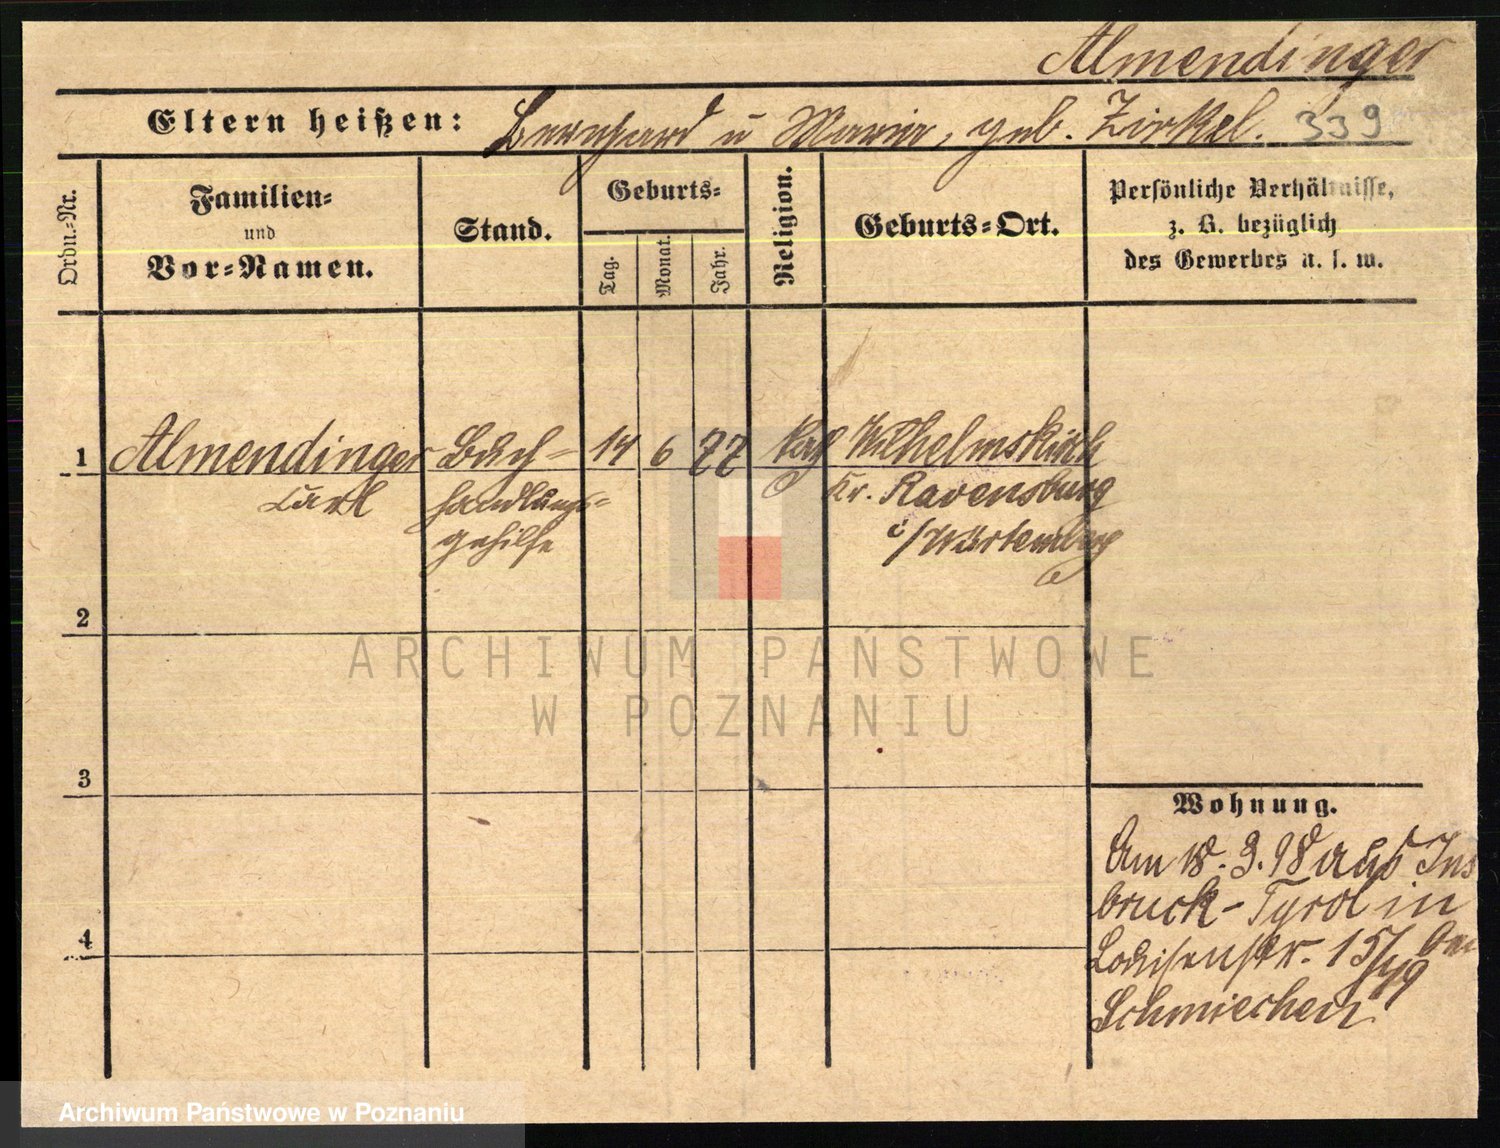 Almendinger
Eltern heißen: Bernhard u Maria, geb. Zirkel. 339
Ordn.-Nr.
Familien-
und
Vor-Namen.
Stand.
Geburts-
Tag.
Monat.
Jahr.
Religion.
Geburts-Ort.
Persönliche Verhältnisse,
z. B. bezüglich
des Gewerbes u. s. w.
1 Almendinger Buch- 14 6 77 kath Wilhelmskirch
Carl handlungs- Kr. Ravensburg
gehilfe i/Würtemberg
2
ARCHIWUM PAŃSTWOWE
W POZNANIU
3
Wohnung.
Am 18.3.98 aus Ins
bruck-Tyrol in
4
Louisenstr. 15/
Schmiechen
Archiwum Państwowe w Poznaniu